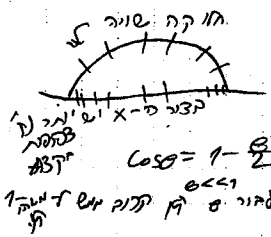 חלוקה שווה
בציר ה-x יש יותר נק'
צפופות
בקצה
cosθ = 1 - θ/2
θ<<1
עבור θ קטן קרוב ממש ל